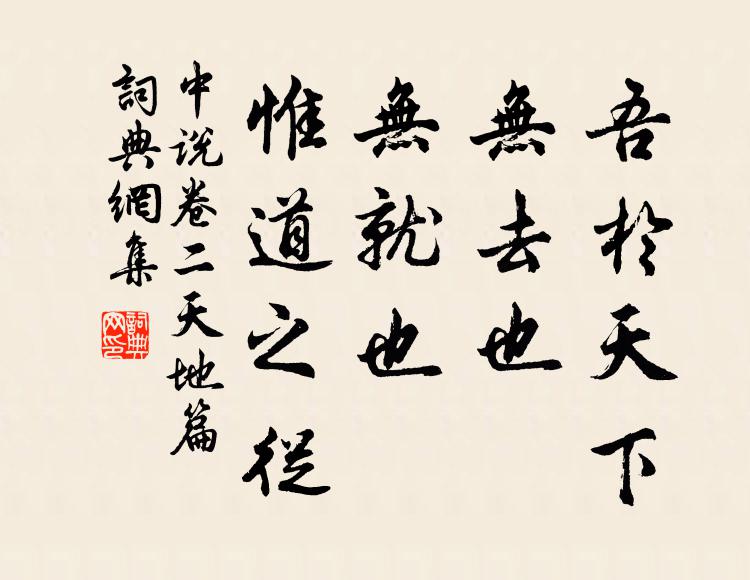 吾於天下
無去也
無就也
惟道之從
中说卷二天地篇
詞典網集
詞典
网印